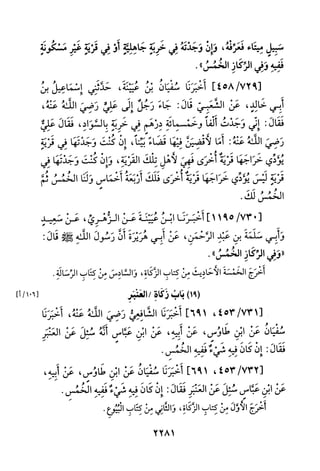 سَبِيلٍ مِيتَاءٍ فَعَرِّفْهُ، وَإِنْ وَجَدْتَهُ فِي خَرِبَةٍ جَاهِلِيَّةٍ أَوْ فِي قَرْيَةٍ غَيْرِ مَسْكُونَةٍ
فَفِيهِ وَفِي الرِّكَازِ الْخُمُسُ».
[٤٥٨/٧٢٩] أَخْبَرَنَا سُفْيَانُ بْنُ عُيَيْنَةَ، حَدَّثَنِي إِسْمَاعِيلُ بْنُ
أَبِي خَالِدٍ، عَنْ الشَّعْبِيِّ قَالَ: جَاءَ رَجُلٌ إِلَى عَلِيٍّ رَضِيَ اللَّهُ عَنْهُ،
فَقَالَ: إِنِّي وَجَدْتُ أَلْفاً وخَمْسِمِائَةِ دِرْهَمٍ فِي خَرِبَةٍ بِالسَّوَادِ، فَقَالَ عَلِيٌّ
رَضِيَ اللَّهُ عَنْهُ: أَمَا لَأَقْضِيَنَّ فِيْهَا قَضَاءً بَيِّناً، إِنْ كُنْتَ وَجَدْتَهَا فِي قَرْيَةٍ
يُؤَدِّي خَرَاجَهَا قَرْيَةٌ أُخْرَى فَهِيَ لأَهْلِ تِلْكَ الْقَرْيَةِ، وَإِنْ كُنْتَ وَجَدْتَهَا فِي
قَرْيَةٍ لَيْسَ يُؤَدِّي خَرَاجَهَا قَرْيَةٌ أُخْرَى فَلَكَ أَرْبَعَةُ أَخْمَاسٍ وَلَنَا الْخُمُسُ ثُمَّ
الْخُمُسُ لَكَ.
[١١٩٥/٧٣٠] أَخْبَرَنَا ابْنُ عُيَيْنَةَ عَنْ الزُّهْرِيِّ، عَنْ سَعِيدٍ
وَأَبِي سَلَمَةَ بنِ عَبْدِ الرَّحْمَنِ، عَنْ أَبِي هُرَيْرَةَ أَنَّ رَسُولَ اللَّهِ ﷺ قَالَ:
«وَفِي الرِّكَازِ الْخُمُسُ».
أَخْرَجَ الْخَمْسَةَ الأَحَادِيثَ مِنْ كِتابِ الزَّكَاةِ، وَالسَّادِسَ مِنْ كِتَابِ الرِّسَالَةِ.
(١٩) بَابُ زَكَاةِ / الْعَنْبَرِ [١٠٦/أ]
[٤٥٣/٧٣١، ٦٩١] أَخْبَرَنَا الشَّافِعِيُّ رَضِيَ اللَّهُ عَنْهُ، أَخْبَرَنَا
سُفْيَانُ عَنْ ابْنِ طَاوُسٍ، عَنْ أَبِيهِ، عَنْ ابْنِ عَبَّاسٍ أَنَّهُ سُئِلَ عَنْ الْعَنْبَرِ
فَقَالَ: إِنْ كَانَ فِيهِ شَيْءٌ فَفِيهِ الْخُمُسُ.
[٤٥٣/٧٣٢، ٦٩١] أَخْبَرَنَا سُفْيَانُ عَنْ ابْنِ طَاوُسٍ، عَنْ أَبِيهِ،
عَنْ ابْنِ عَبَّاسٍ سُئِلَ عَنْ الْعَنْبَرِ فَقَالَ: إِنْ كَانَ فِيهِ شَيْءٌ فَفِيهِ الْخُمُسُ.
أَخْرَجَ الأَوَّلَ مِنْ كِتابِ الزَّكَاةِ، وَالثَّانِي مِنْ كِتَابِ الْبُيُوعِ.
٢٢٨١